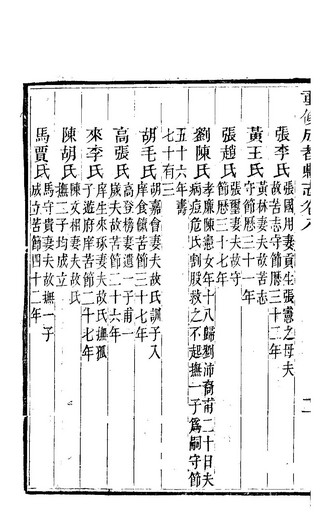 重修成都縣志卷八
張李氏 張國用妻貢生張憲之母夫
故苦志守節歷三十二年
黃王氏 黃林妻夫故苦志
守節歷三十一年
張趙氏 張璽妻夫故守
節歷三十七年
劉陳氏 孝廉陳憲女年十八歸劉沛裔甫二十日夫
病痘危氏刲股救之不起撫一子爲嗣守節
五十六年壽
七十有三
胡毛氏 胡嘉會妻夫故氏訓子入
庠食餼苦節三十七年
高張氏 高登榜妻遺一子甫一
歲夫故苦節二十六年
來李氏 庠生來琢妻夫故氏撫孤
子遊府庠苦節二十七年
陳胡氏 陳文相妻夫故氏
撫二子均成立
馬賈氏 馬守貴妻夫故撫一子
成立苦節四十二年